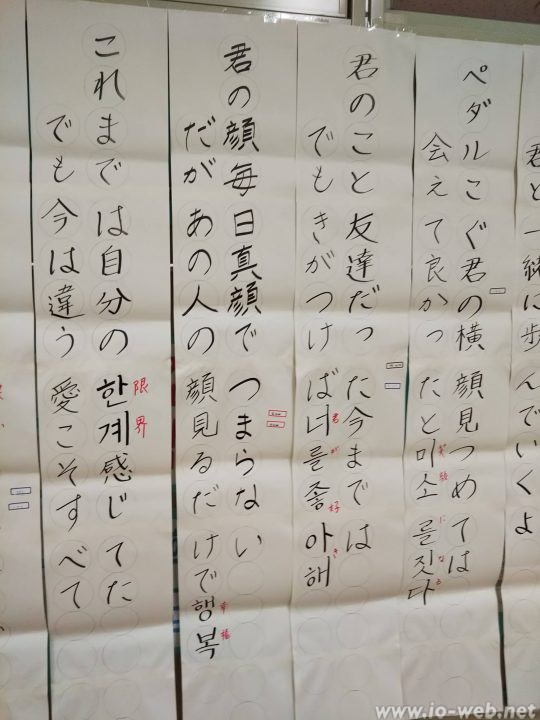 君と一緒に歩んでいくよ
ペダルこぐ君の横顔見つめては
会えて良かったと미소를짓다
になる
君のこと友達だった今までは
でもきがつけば너를좋아해
君が好き
君の顔毎日真顔でつまらない
だがあの人の顔見るだけで행복
幸福
これまでは自分の한계感じてた
限界
でも今は違う愛こそすべて
www.io-web.net